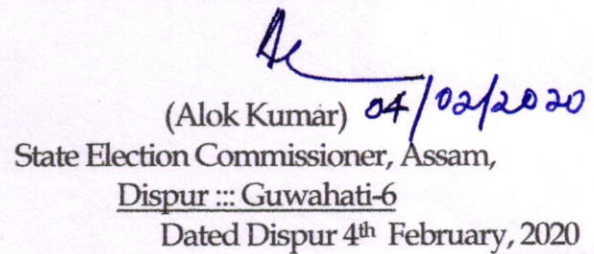 (Alok Kumar) 04/02/2020
State Election Commissioner, Assam,
Dispur ::: Guwahati-6
Dated Dispur 4th February, 2020